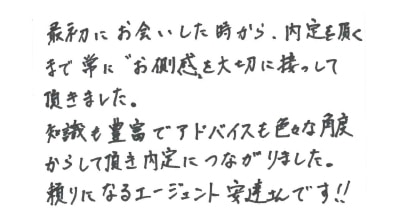 最初にお会いした時から、内定を頂く
まで常に〝お側感〟を大切に接っして
頂きました。
知識も豊富でアドバイスも色々な角度
からして頂き内定につながりました。
頼りになるエージェント安達さんです!!